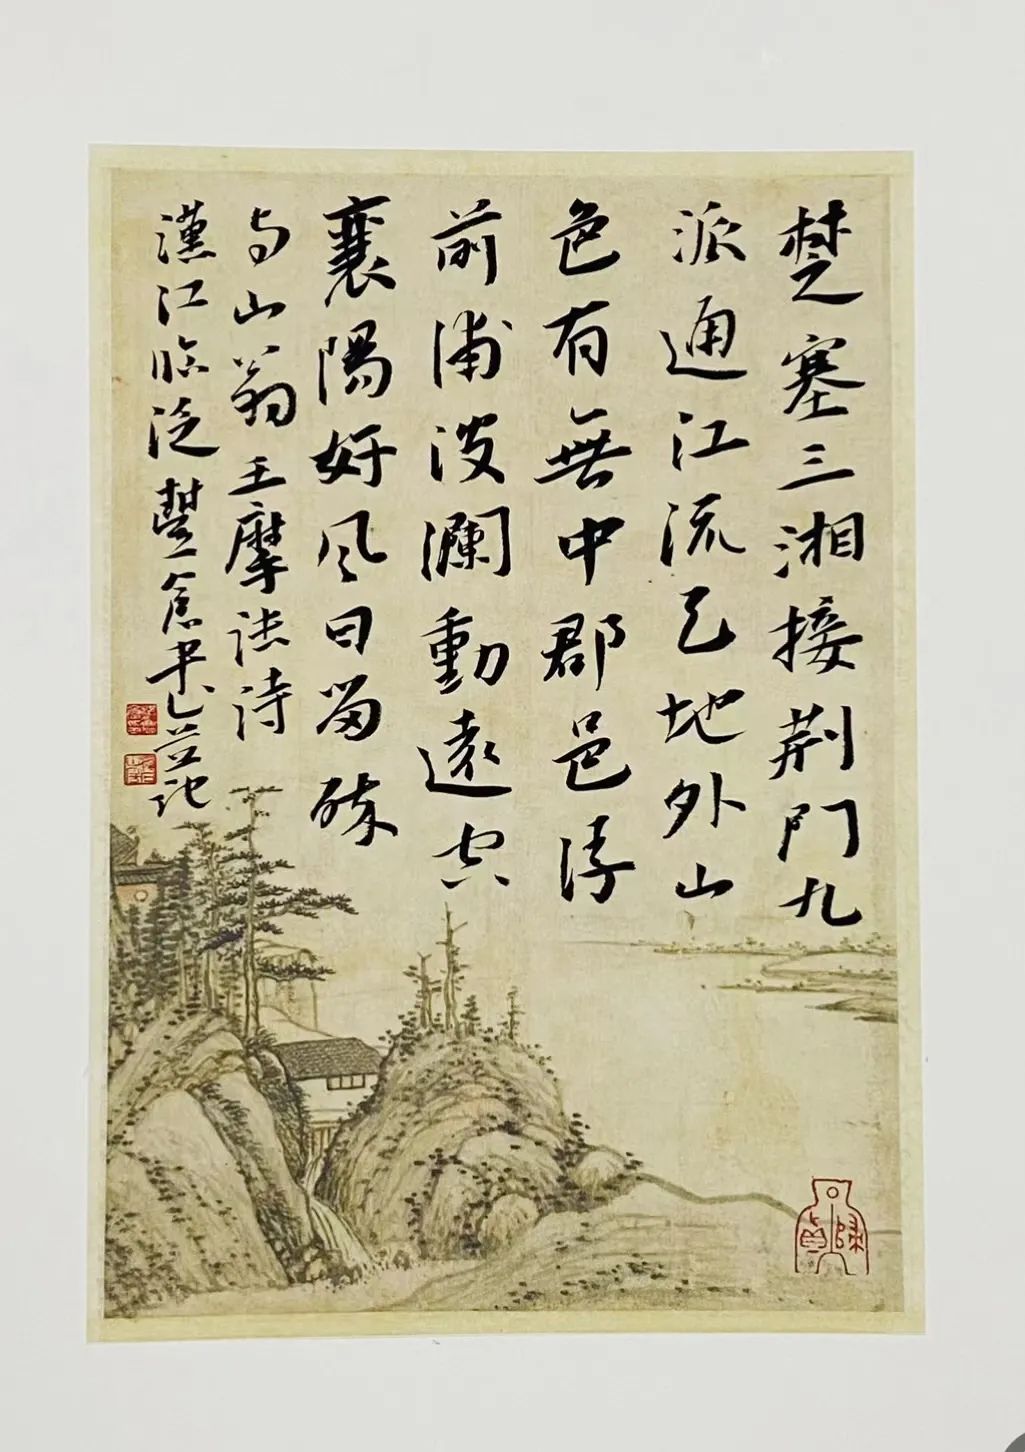 楚塞三湘接荆門九
派通江流天地外山
色有無中郡邑浮
前浦波瀾動遠空
襄陽好风日留醉
与山翁王摩詰詩
漢江臨泛